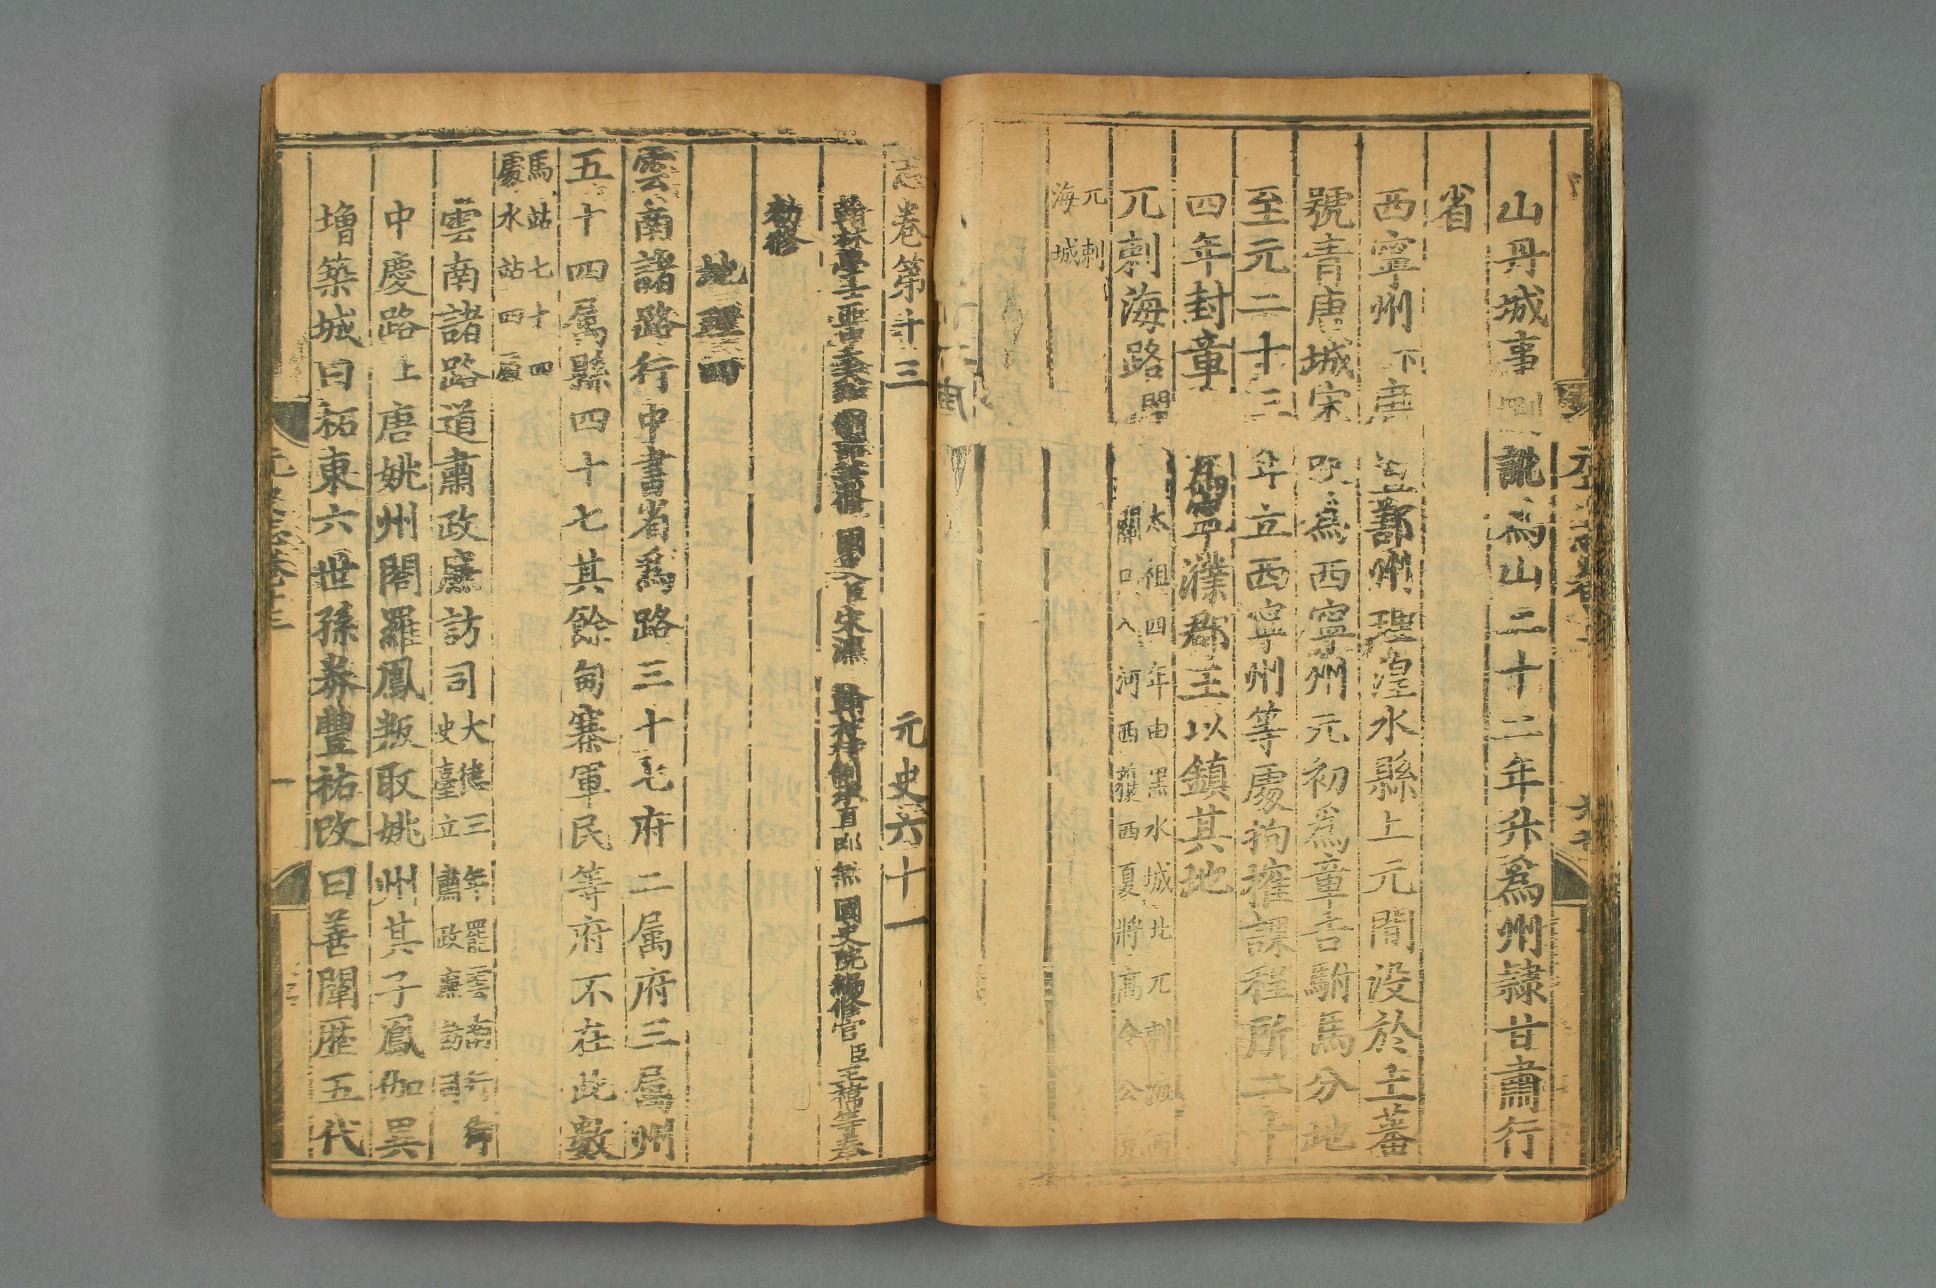 山丹城事訛為山二十二年升爲州隷甘肅行
省
西寧州下唐置鄯州理湟水縣上元間没於土蕃
號青唐城宋改爲西寧州元初爲章吉駙馬分地
至元二十三年立西寧州等處拘㩁課程所二十
四年封章吉爲寧濮郡王以鎮其地
兀剌海路闕
太祖四年由黑水城北兀剌海西
關口入河西獲西夏將高令公克
兀剌
海城
志卷第十三 元史六十一
翰林學士亞中大夫知制誥兼脩國史臣宋濂 翰林待制承直郎兼國史院編修官臣王禕等奉
勑修
地理四
雲南諸路行中書省爲路三十七府二屬府三屬州
五十四屬縣四十七其餘甸寨軍民等府不在此數
馬站七十四
處水站四處
雲南諸路道肅政廉訪司
大德三年罷雲南行御
史臺立肅政廉訪司
中慶路上唐姚州閤羅鳳叛取姚州其子鳳伽異
增築城曰柘東六世孫券豐祐改曰善闡歷五代
元史志卷十三
一